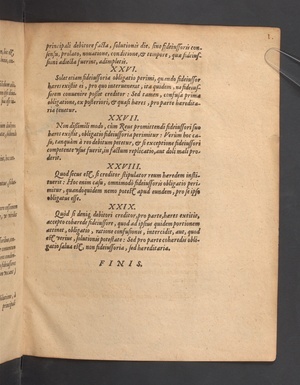 principali debitore facta, solutionis die, sine fideiussoris con
sensu, prolato, nouatione, conditione, & tempore, qua fideius-
sioni adiecta fuerint, adimpletis.
XXVI.
Solet etiam fideiussoria obligatio perimi, quando fideiussor
hæres existit ei, pro quo interuenerat, ita quidem, ut fideius-
sorem conuenire possit creditor: Sed tamen, confusa prima
obligatione, ex posteriori, & quasi hæres, pro parte hæredita
ria tenetur.
XXVII.
Non dissimili modo, cùm Reus promittendi fideiussori suo
hæres existit, obligatio fideiussoria perimitur: Verùm hoc ca-
su, tanquàm à reo debitum petetur, & si exceptione fideiussori
competente usus fuerit, in factum replicatio, aut doli mali pro
derit.
XXVIII.
Quod secus est, si creditor stipulator reum hæredem insti-
tuerit: Hoc enim casu, omnimodò fideiussoris obligatio peri
mitur, quandoquidem nemo potest apud eundem, pro se ipso
obligatus esse.
XXIX.
Quòd si deniq; debitori creditor, pro parte, hæres extiterit,
accepto cohærede fideiussore, quod ad ipsius quidem portionem
attinet, obligatio, ratione confusionis, intercidit, aut, quod
est verius, solutionis potestate: Sed pro parte cohæredis obli-
gatio salua est, non fideiussoria, sed hæreditaria.
FINIS.